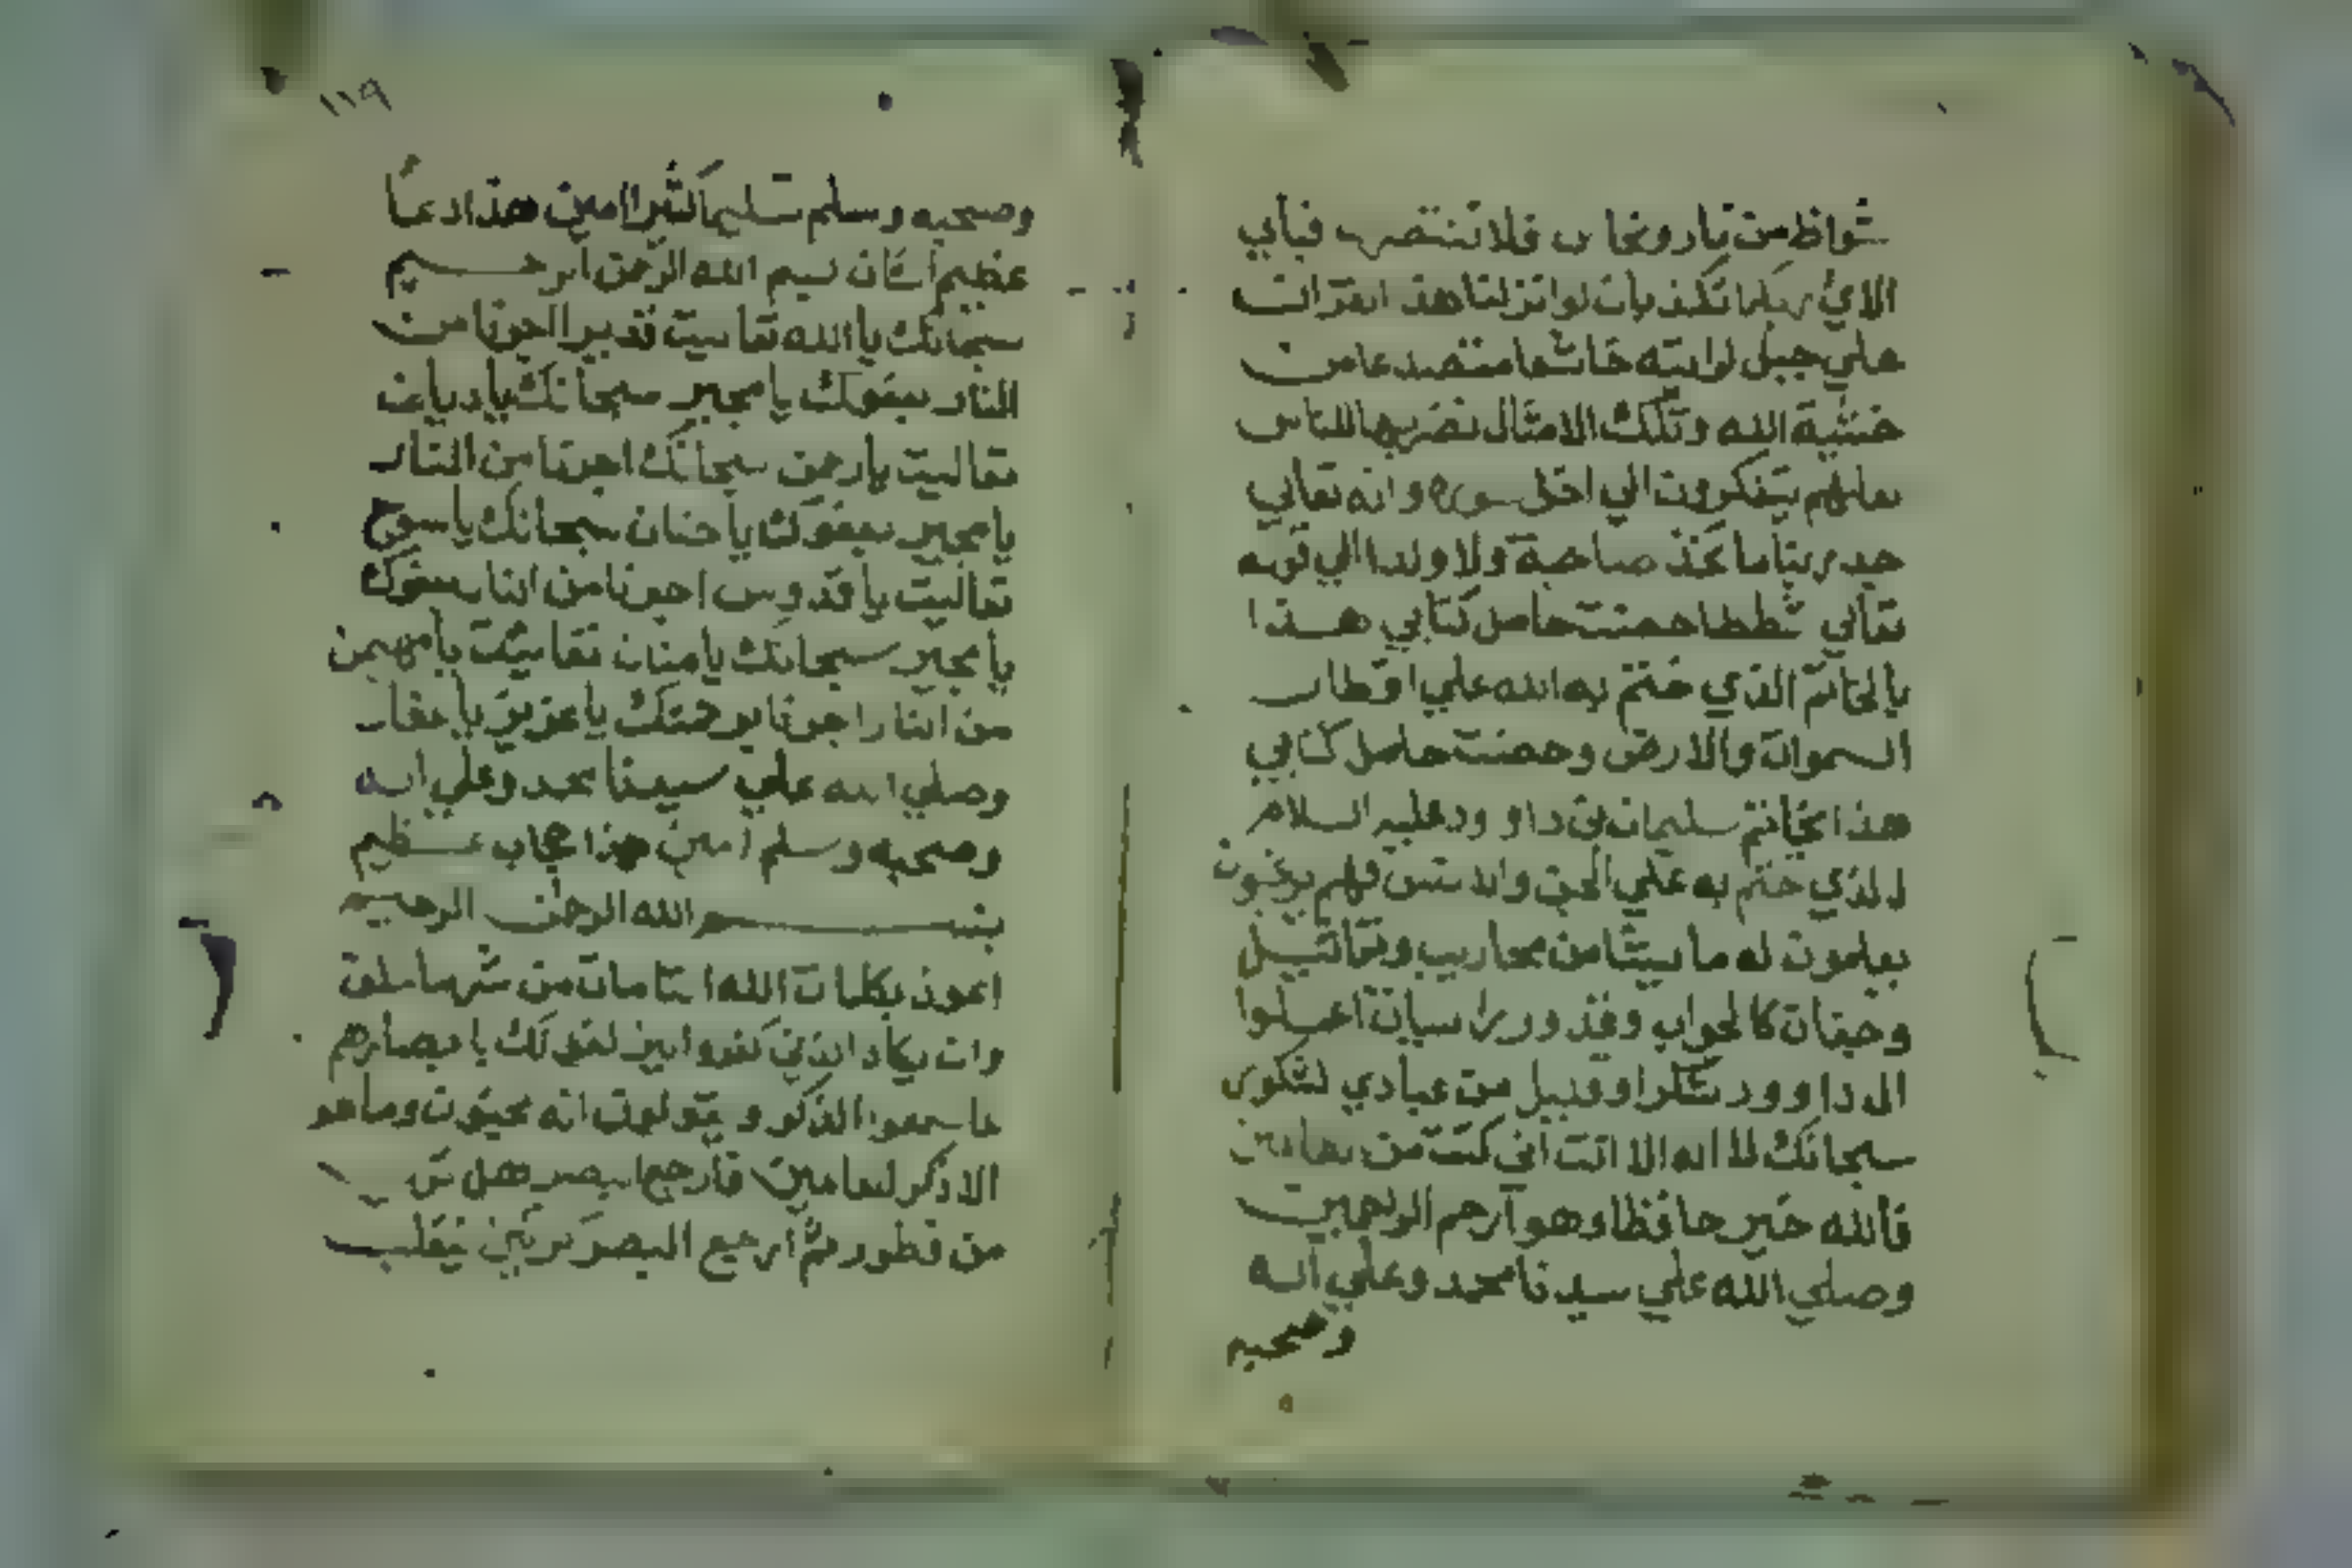 شواظ من نار ونحاس فلا تنتصرن فبأي
الاي ربكما تكذبان لو انزلنا هذا القران
علي جبل لرايته خاشعا متصدعا من
خشية الله وتلك الامثال نضربها للناس
لعلهم يتفكرون الي اخر سورة وانه تعالي
جد ربنا ما تخذ صاحبة ولا ولدا الي قوله
تعالي شططا حصنت حامل كتابي هذا
بالخاتم الذي ختم به الله علي اقطار
السموات والارض وحصنت حامل كتابي
هذا بخاتم سليمان بن داوود عليه السلام
الذي ختم به علي الجن والانس فهم يوزعون
يعلمون له ما يشا من محاريب وتماثيل
وجفان كالجواب وقدور راسيات اعملوا
ال داوود شكرا وقليل من عبادي الشكور
سبحانك لا اله الا انت اني كنت من الظالمين
فالله خير حافظا وهو ارحم الراحمين
وصلي الله علي سيدنا محمد وعلي اله
وصحبه
١١٩
وصحبه وسلم تسليما كثيرا امين هذا دعا
عظيم الشان بسم الله الرحمن الرحيم
سبحانك يا الله تعاليت قدير اجرنا من
النار بعفوك يا مجير سبحانك يا ديان
تعاليت يا رحمن سبحانك اجرنا من النار
يا مجير بعفوك يا حنان سبحانك يا سبوح
تعاليت يا قدوس اجرنا من النار بعفوك
يا مجير سبحانك يا منان تعاليت يا مهيمن
من النار اجرنا برحمتك يا عزيز يا غفار
وصلي الله علي سيدنا محمد وعلي اله
وصحبه وسلم امين هذا حجاب عظيم
بسم الله الرحمن الرحيم
اعوذ بكلمات الله التامات من شر ما خلق
وان يكاد الذين كفروا ليزلقونك بابصارهم
لما سمعوا الذكر ويقولون انه لمجنون وما هو
الا ذكر للعالمين فارجع البصر هل تري
من فطور ثم ارجع البصر كرتين ينقلب